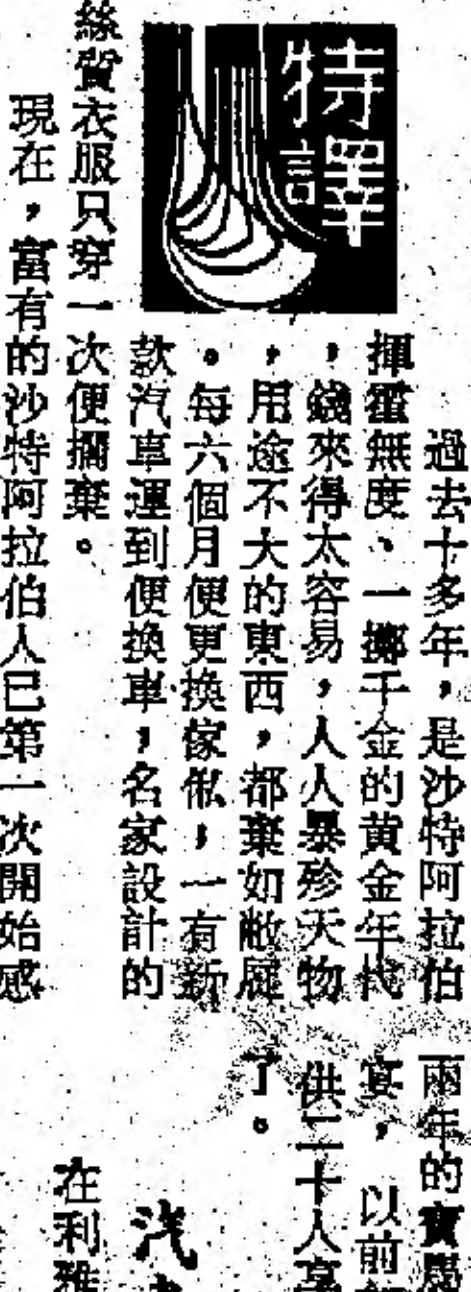 特譯
特訊
過去十多年，是沙特阿拉伯
揮霍無度、一擲千金的黃金年代
，錢來得太容易，人人暴殄天物
，用途不大的東西，都棄如敝屣
。每六個月便更換傢俬，一有新
款汽車運到便換車，名家設計的
絲質衣服只穿一次便擱棄。
現在，富有的沙特阿拉伯人已第一次開始感
兩年的寶馬
宴，以前
供二十人享
了。
汽
在利雅